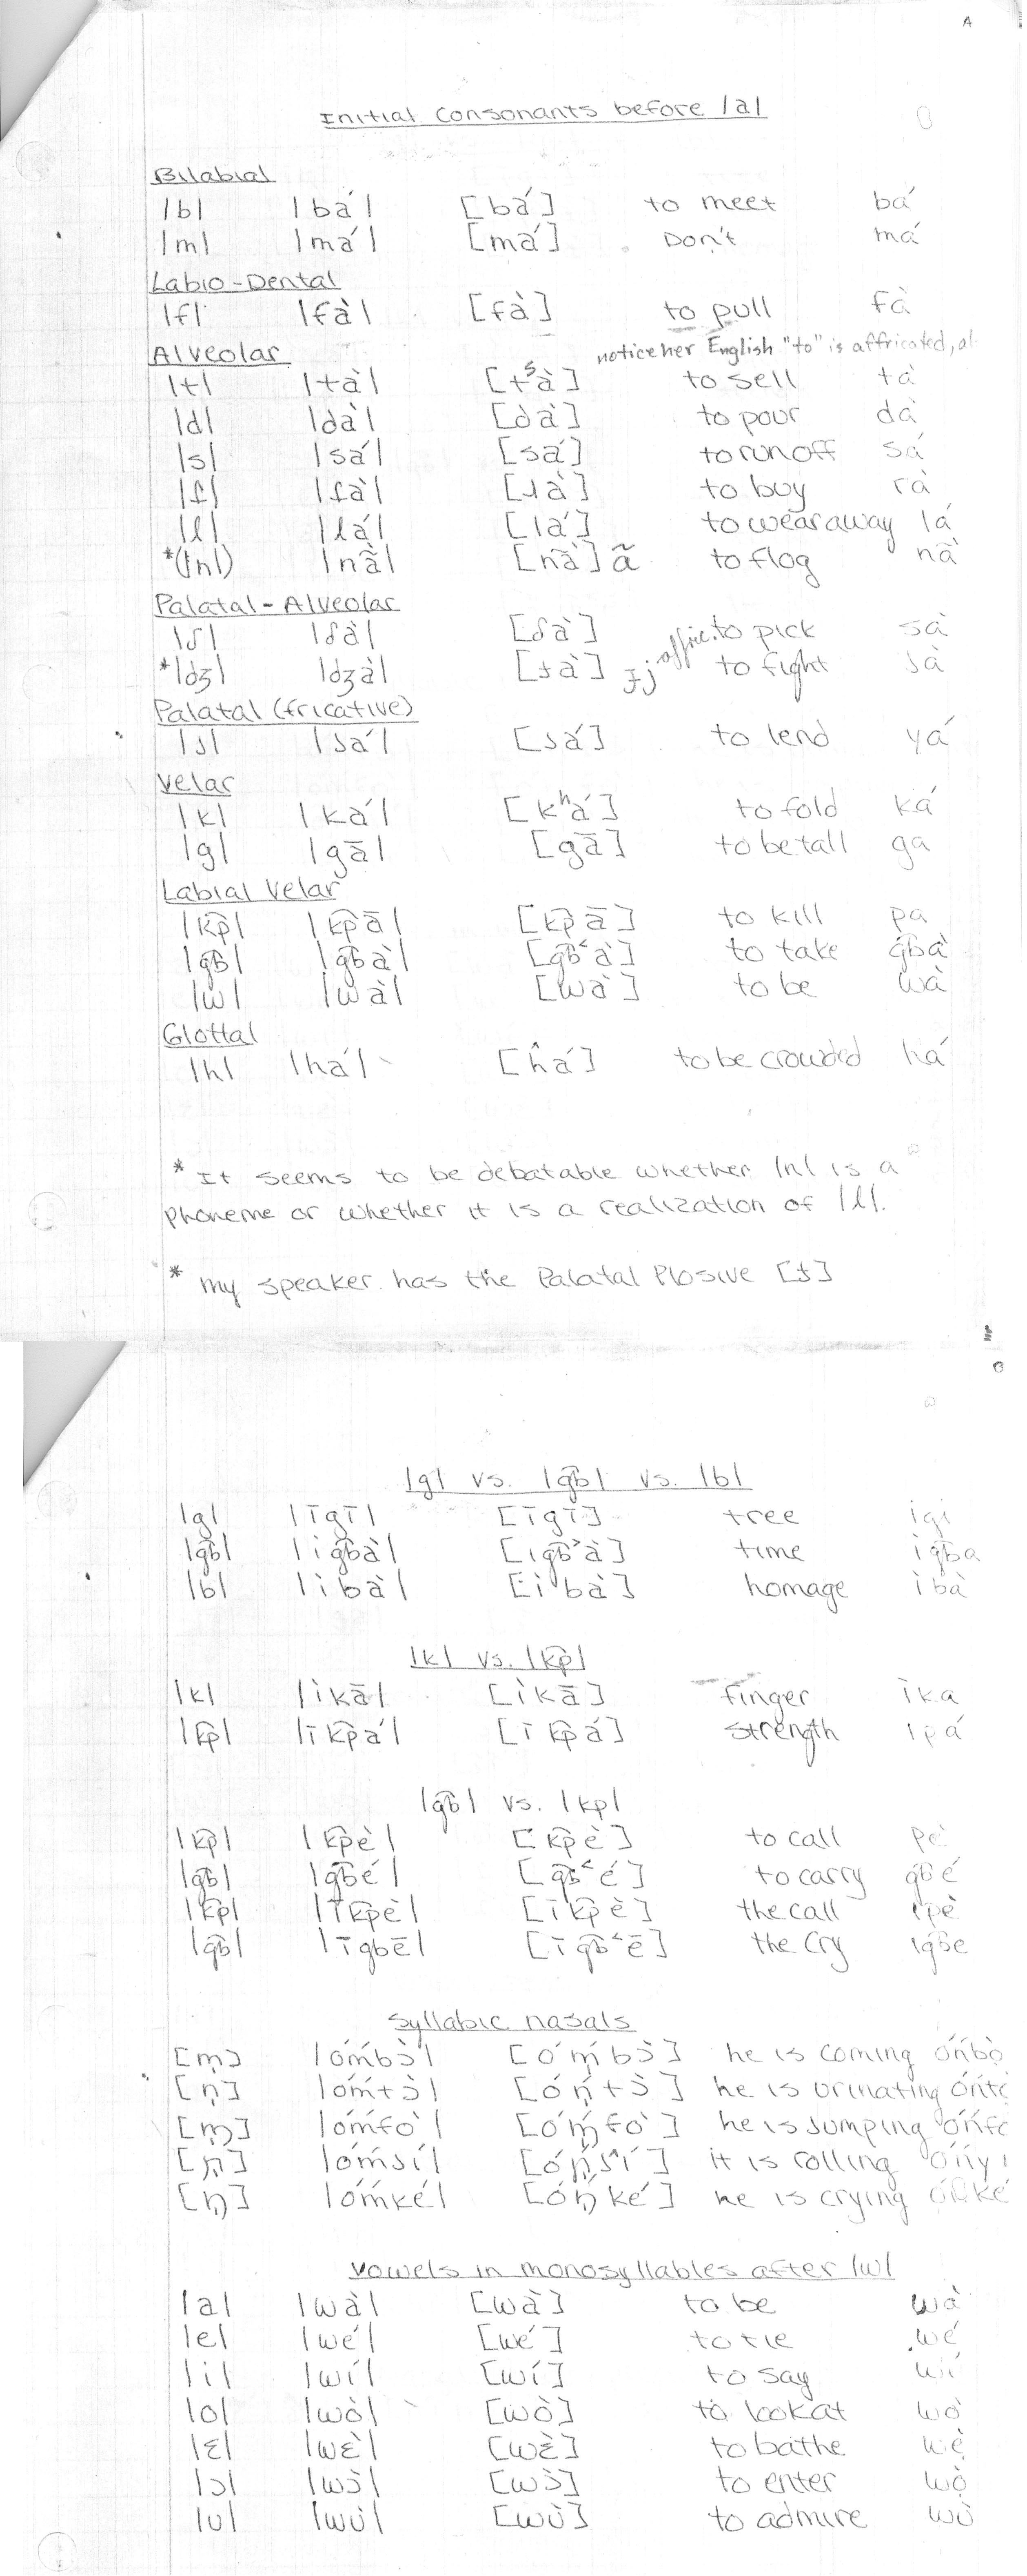 A
Initial Consonants before /a/
Bilabial
/b/ /bá/ [bá] to meet bá
/m/ /má/ [má] Don't má
Labio-Dental
/f/ /fà/ [fà] to pull fà
Alveolar noticeher English "to" is affricated,
/t/ /tà/ [tˢà] to sell tà
/d/ /dà/ [dà] to pour dà
/s/ /sá/ [sá] to run off sá
/ɾ/ /ɾà/ [ɹà] to buy rà
/l/ /lá/ [lá] to wear away lá
*(/n/) /nã̀/ [nã̀] ã to flog nã̀
Palatal-Alveolar
/ʃ/ /ʃà/ [ʃà] to pick sà
*/dʒ/ /dʒà/ [ɟà] ɟj affric. to fight jà
Palatal (fricative)
/j/ /já/ [já] to lend yá
Velar
/k/ /ká/ [kʰá] to fold ká
/g/ /gā/ [gā] to be tall ga
Labial Velar
/k͡p/ /k͡pā/ [k͡pā] to kill pa
/g͡b/ /g͡bà/ [g͡bʻà] to take g͡bà
/w/ /wà/ [wà] to be wà
Glottal
/h/ /há/ [ĥá] to be crowded há
* It seems to be debatable whether /n/ is a
phoneme or whether it is a realization of /l/.
* my speaker has the Palatal Plosive [ɟ]
/g/ vs. /g͡b/ vs. /b/
/g/ /īgī/ [īgī] tree igi
/g͡b/ /ìg͡bà/ [ìg͡bʼà] time ìg͡ba
/b/ /ìbà/ [ìbà] homage ìbà
/k/ vs. /k͡p/
/k/ /ìkā/ [ìkā] finger ìka
/k͡p/ /īk͡pá/ [īk͡pá] strength ipá
/g͡b/ vs. /kp/
/k͡p/ /k͡pè/ [k͡pè] to call pè
/g͡b/ /g͡bé/ [g͡bʻé] to carry g͡bé
/k͡p/ /īk͡pè/ [īk͡pè] the call ipè
/g͡b/ /īgbē/ [īg͡bʻē] the cry ig͡be
Syllabic nasals
[m̩] /óḿbɔ̀/ [óḿ̩bɔ̀] he is coming óńbọ̀
[n̩] /óḿtɔ̀/ [óń̩tɔ̀] he is urinating
[ɱ̩] /óḿfò/ [óɱ̩́fò] he is jumping
[ɲ̩] /óḿjí/ [óɲ̩́jí] it is rolling óńyí
[ŋ̩] /óḿké/ [óŋ̩́ké] he is crying óńké
Vowels in monosyllables after /w/
/a/ /wà/ [wà] to be wà
/e/ /wé/ [wé] to tie wé
/i/ /wí/ [wí] to say wí
/o/ /wò/ [wò] to look at wò
/ɛ/ /wɛ̀/ [wɛ̀] to bathe wẹ̀
/ɔ/ /wɔ̀/ [wɔ̀] to enter wọ̀
/u/ /wù/ [wù] to admire wù